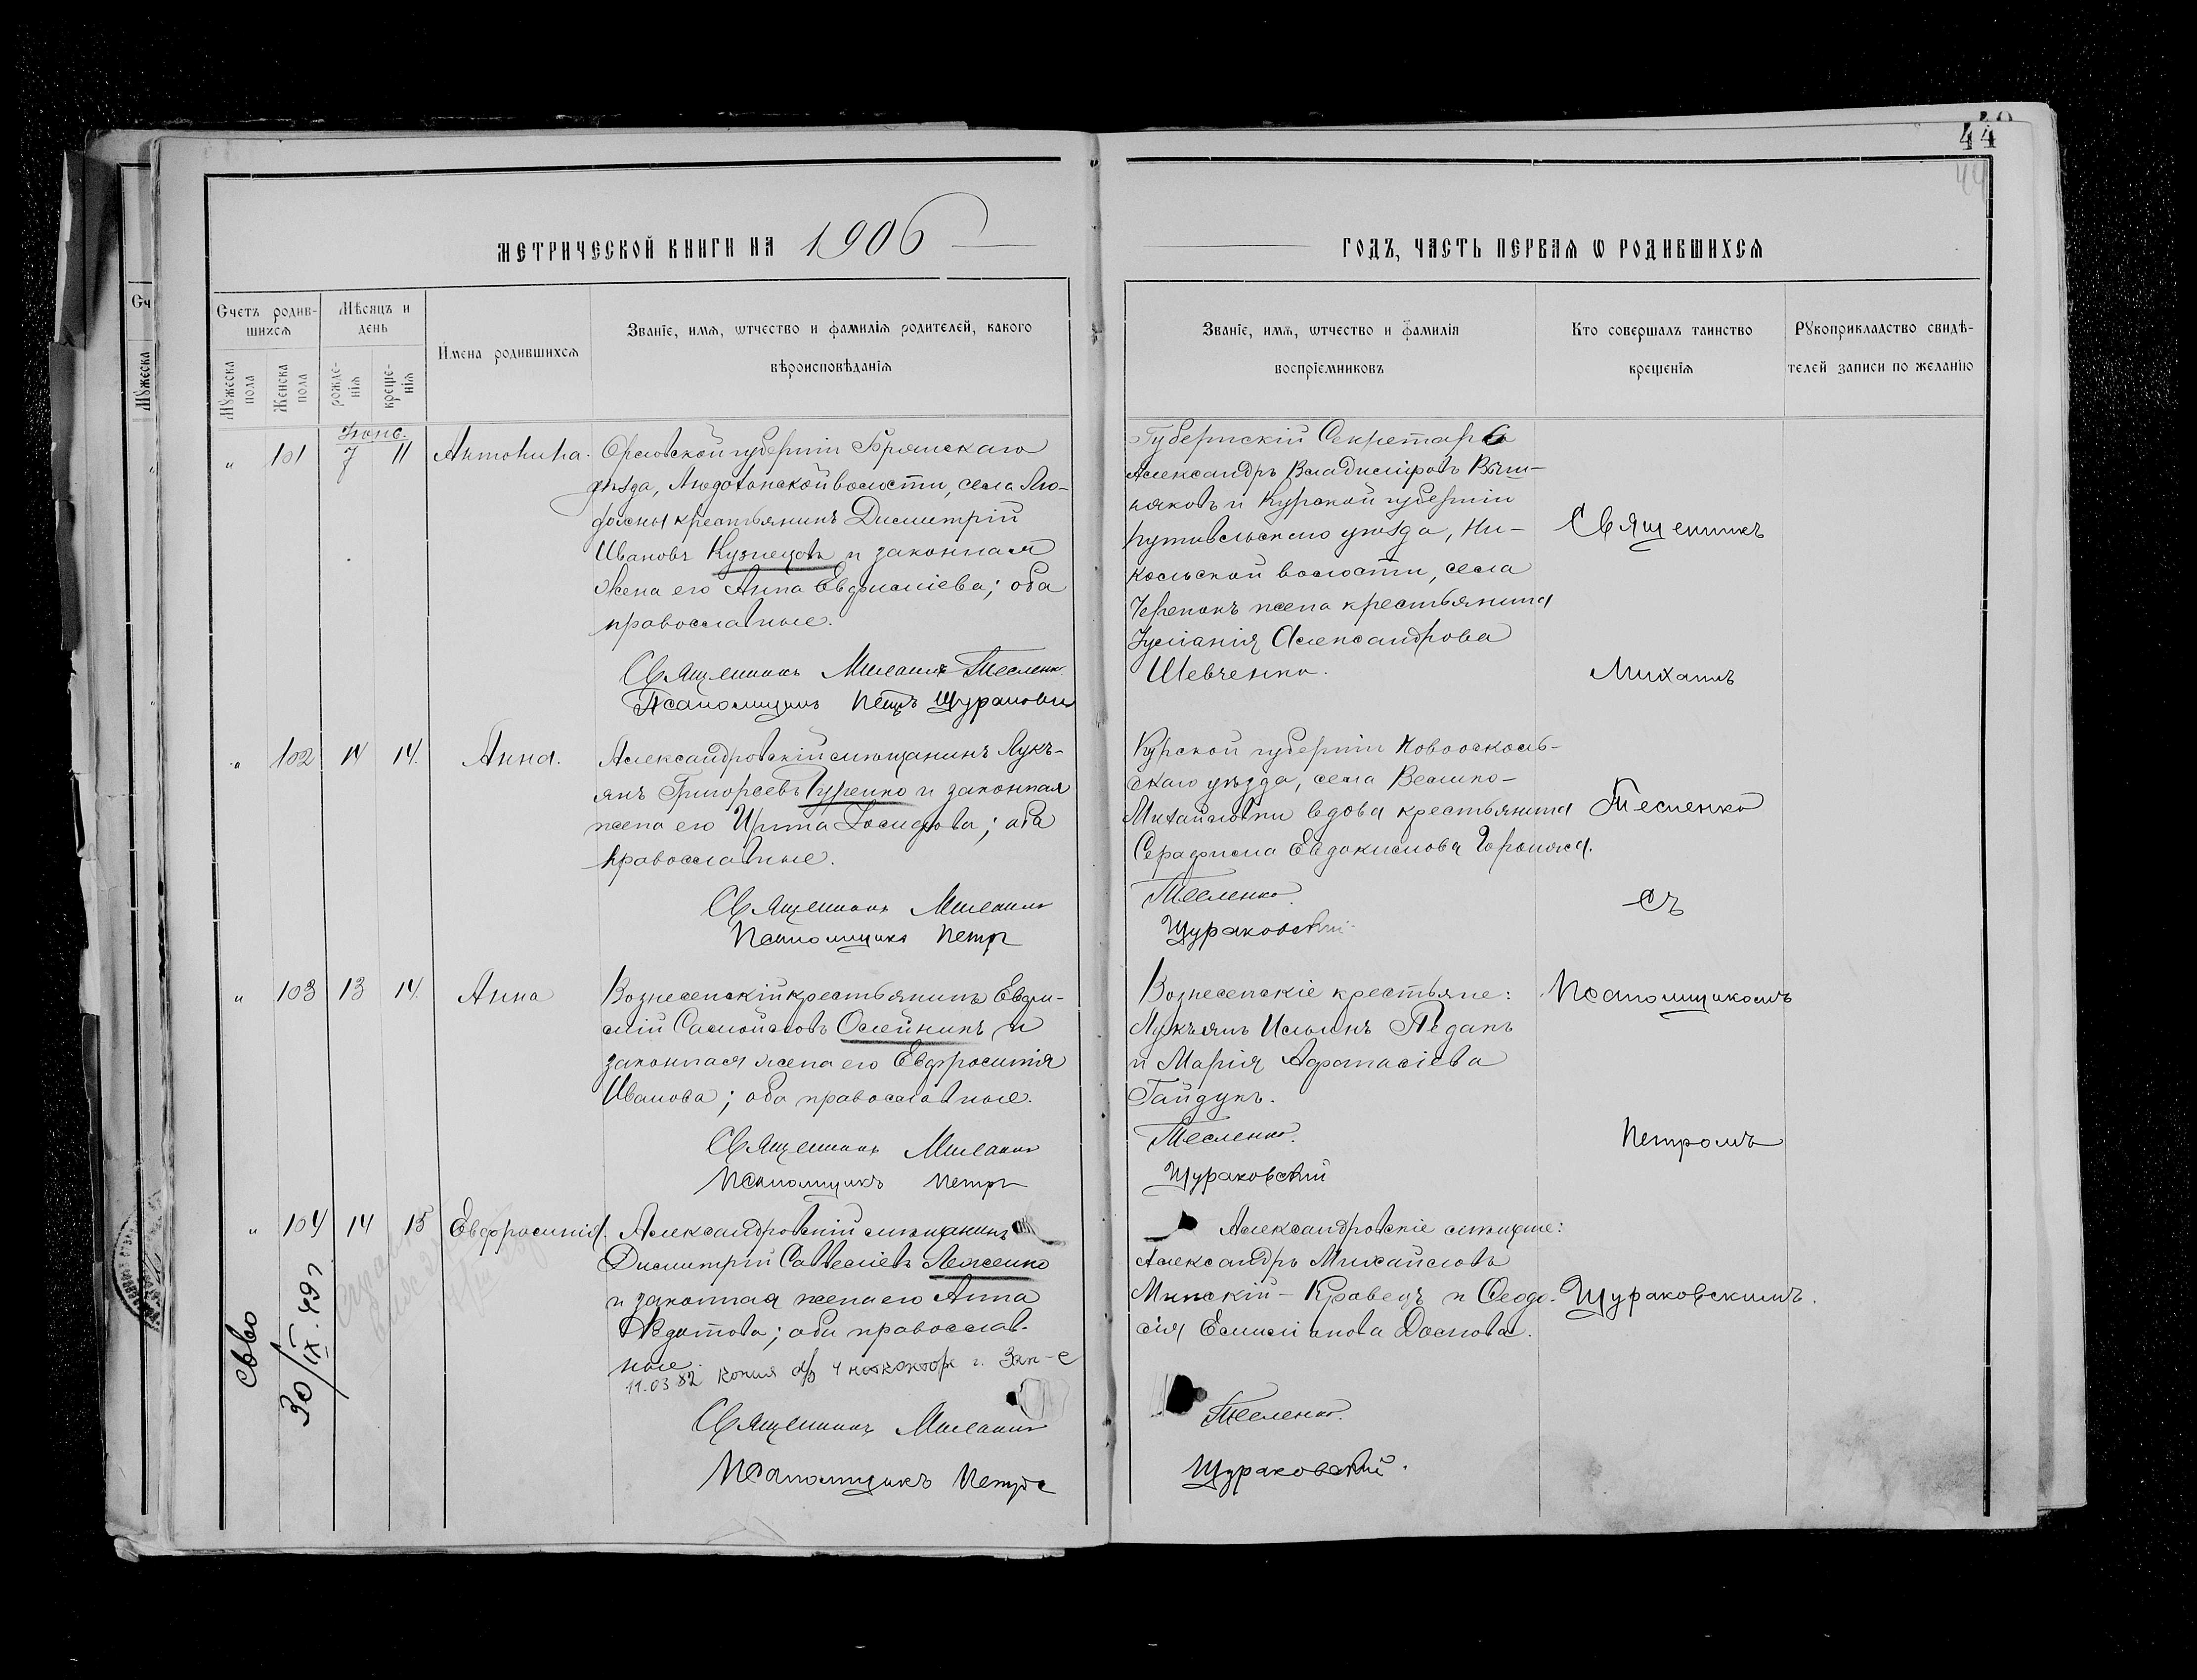 44
44
МЕТРИЧЕСКОЙ КНИГИ НА 1906
ГОДЪ, ЧАСТЬ ПЕРВАЯ Ѡ РОДИВШИХСЯ
Счетъ родив-
шихся
Мужеска
пола
Женска
пола
Мѣсяцъ и
день
рожде-
нія
креще-
нія
Имена родившихся
Званіе, имя, ѡтчество и фамилія родителей, какого
вѣроисповѣданія
Званіе, имя, ѡтчество и фамилія
воспріемниковъ
Кто совершалъ таинство
крещенія
Рукоприкладство свидѣ-
телей записи по желанію
Іюнь.
" 101 7 11 Антонина.
Орловской губерніи Брянскаго
уѣзда, Людохонской волости, села Лю-
крестьянинъ Димитрій
Ивановъ Кузнецовъ и законная
жена его Анна Евфиміева; оба
православные.
Священникъ Михаилъ Тесленко
Псаломщикъ Петръ Щураковскій
Губернскій Секретарь
Александръ Владиміровъ Виш-
няковъ и Курской губерніи
Путивльскаго уѣзда, Ни-
кольской волости, села
Черепокъ жена крестьянина
Іуліанія Александрова
Шевченко.
" 102 14 14. Анна.
Александровскій мѣщанинъ Лукъ-
янъ Григорьевъ Гуренко и законная
жена его Ирина Іосифова; оба
православные.
Священникъ Михаилъ
Псаломщикъ Петръ
Курской губерніи Новооскольс-
скаго уѣзда, села Велико-
Михайловки вдова крестьянина
Серафима Евдокимова
Тесленко.
Щураковскій
" 103 13 14. Анна
Вознесенскій крестьянинъ Евфи-
мій Самойловъ Олейникъ и
законная жена его Евфросинія
Иванова; оба православные.
Священникъ Михаилъ
Псаломщикъ Петръ
Вознесенскіе крестьяне:
Лукъянъ Ильинъ Педанъ
и Марія Афанасіева
Гайдукъ.
Тесленко.
Щураковскій
" 104 14 15 Евфросинія.
Александровскій мѣщанинъ
Димитрій Савеліевъ Леженко
и законная жена его Анна
Федотова; оба православ-
ные.
11.03 82 копия 4 нотконтора г. Зап-е
Священникъ Михаилъ
Псаломщикъ Петръ
Александровскіе мѣщане:
Александръ Михайловъ
Минскій-Кравецъ и Ѳеодо-
сія Емиліанова
Тесленко.
Щураковскій.
Священникъ
Михаилъ
Тесленко
съ
Псаломщикомъ
Петромъ
Щураковскимъ.
св-во
30/IX.49 г